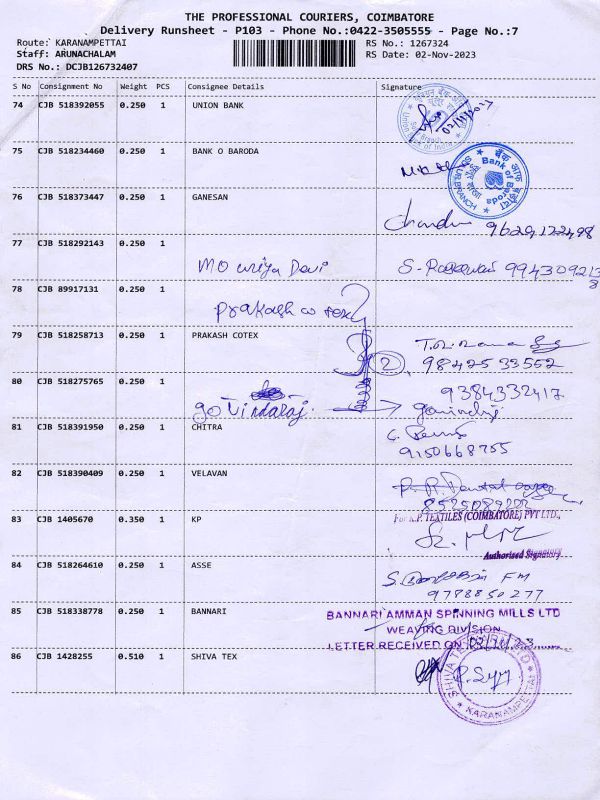 THE PROFESSIONAL COURIERS, COIMBATORE
Delivery Runsheet - P103 - Phone No.:0422-3505555 - Page No.:7
Route: KARANAMPETTAI RS No.: 1267324
Staff: ARUNACHALAM RS Date: 02-Nov-2023
DRS No.: DCJB126732407
S No Consignment No Weight PCS Consignee Details Signature
74 CJB 518392055 0.250 1 UNION BANK
75 CJB 518234460 0.250 1 BANK O BARODA
Bank of Baroda
76 CJB 518373447 0.250 1 GANESAN
9629122498
77 CJB 518292143 0.250 1
Mouriya Devi
78 CJB 89917131 0.250 1
Prakash co tex
79 CJB 518258713 0.250 1 PRAKASH COTEX
2 98425 33552
80 CJB 518275765 0.250 1
9384332417
govindaraj
81 CJB 518391950 0.250 1 CHITRA
9150668755
82 CJB 518390409 0.250 1 VELAVAN
83 CJB 1405670 0.350 1 KP
For K.P. TEXTILES (COIMBATORE) PVT LTD.,
Authorised Signatory
84 CJB 518264610 0.250 1 ASSE
9788850277
85 CJB 518338778 0.250 1 BANNARI
BANNARI AMMAN SPINNING MILLS LTD
WEAVING DIVISION
LETTER RECEIVED ON
86 CJB 1428255 0.510 1 SHIVA TEX
KARANAMPETTAI